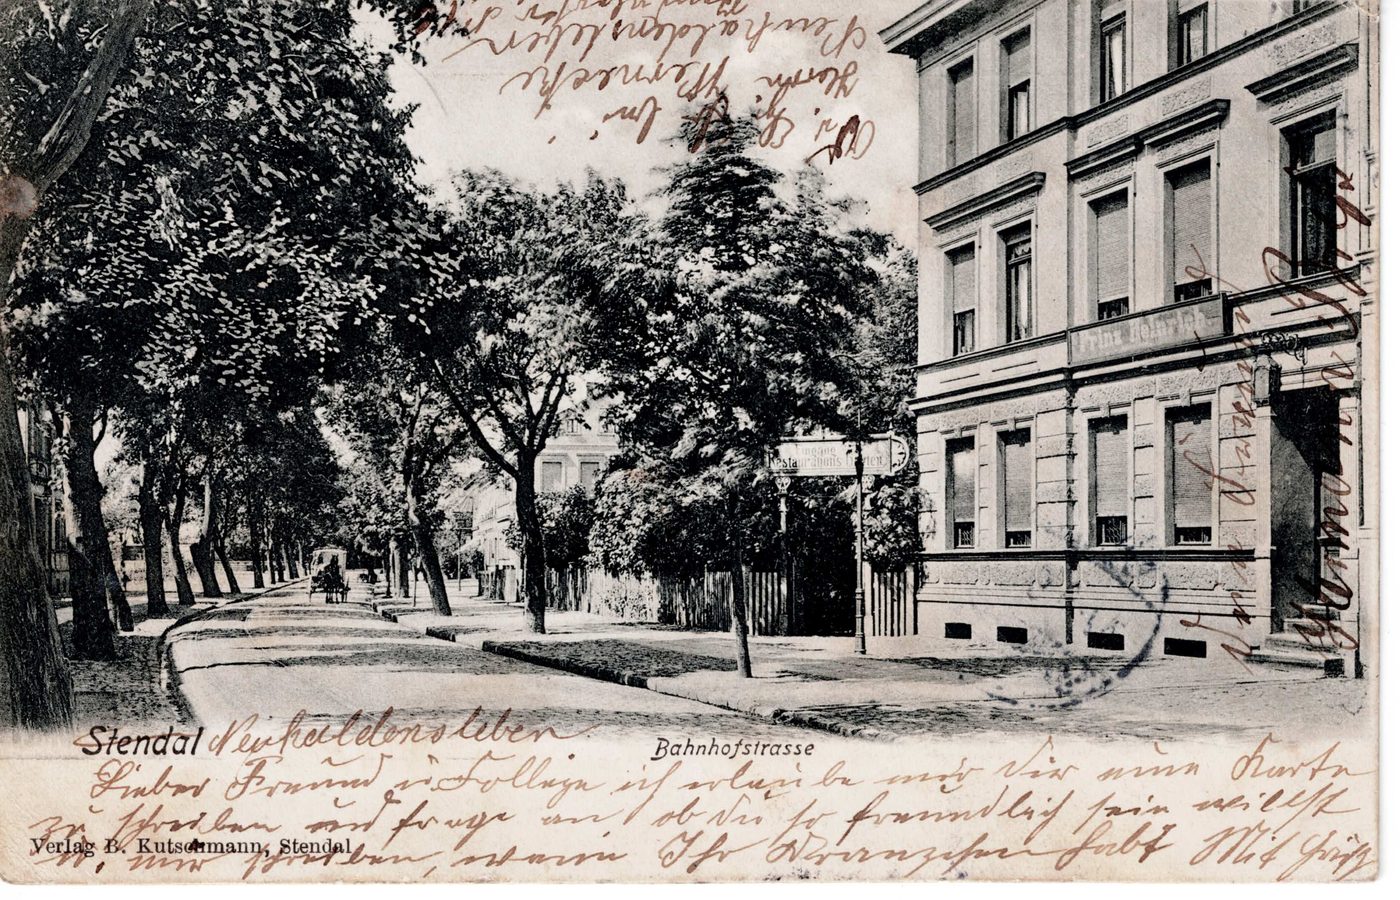 Prinz Heinrich
Eingang
Restaurations Garten
Stendal Neuhaldensleben
Bahnhofstrasse
Lieber Freund u. Collega ich erlaube mir Dir eine Karte
zu schreiben und frage an, ob du so freundlich sein willst
u. mir schreiben, wenn Ihr Kränzchen habt Mit
Verlag B. Kutschmann, Stendal
Hermann
Herrn Wernecke
in
Neuhaldensleben